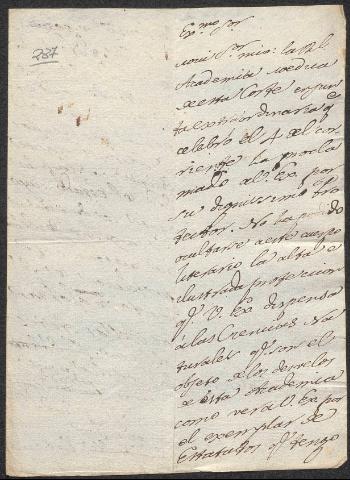 237
Exmo Sor
mui Sr. mio: la Rl.
Academia medica
de esta Corte en jun
ta extraordinaria qe
celebró el 4 del cor
riente ha procla
mado a V. Ex. por
su dignisimo Pro
tector. No ha podido
ocultarse a este cuerpo
literario la alta é
ilustrada proteccion
qe. V. Ex. dispensa
á las Ciencias Na
turales qe. son el
objeto de los desvelos
de esta Academia
como verá V. Ex. por
el exemplar de
Estatutos qe. tengo